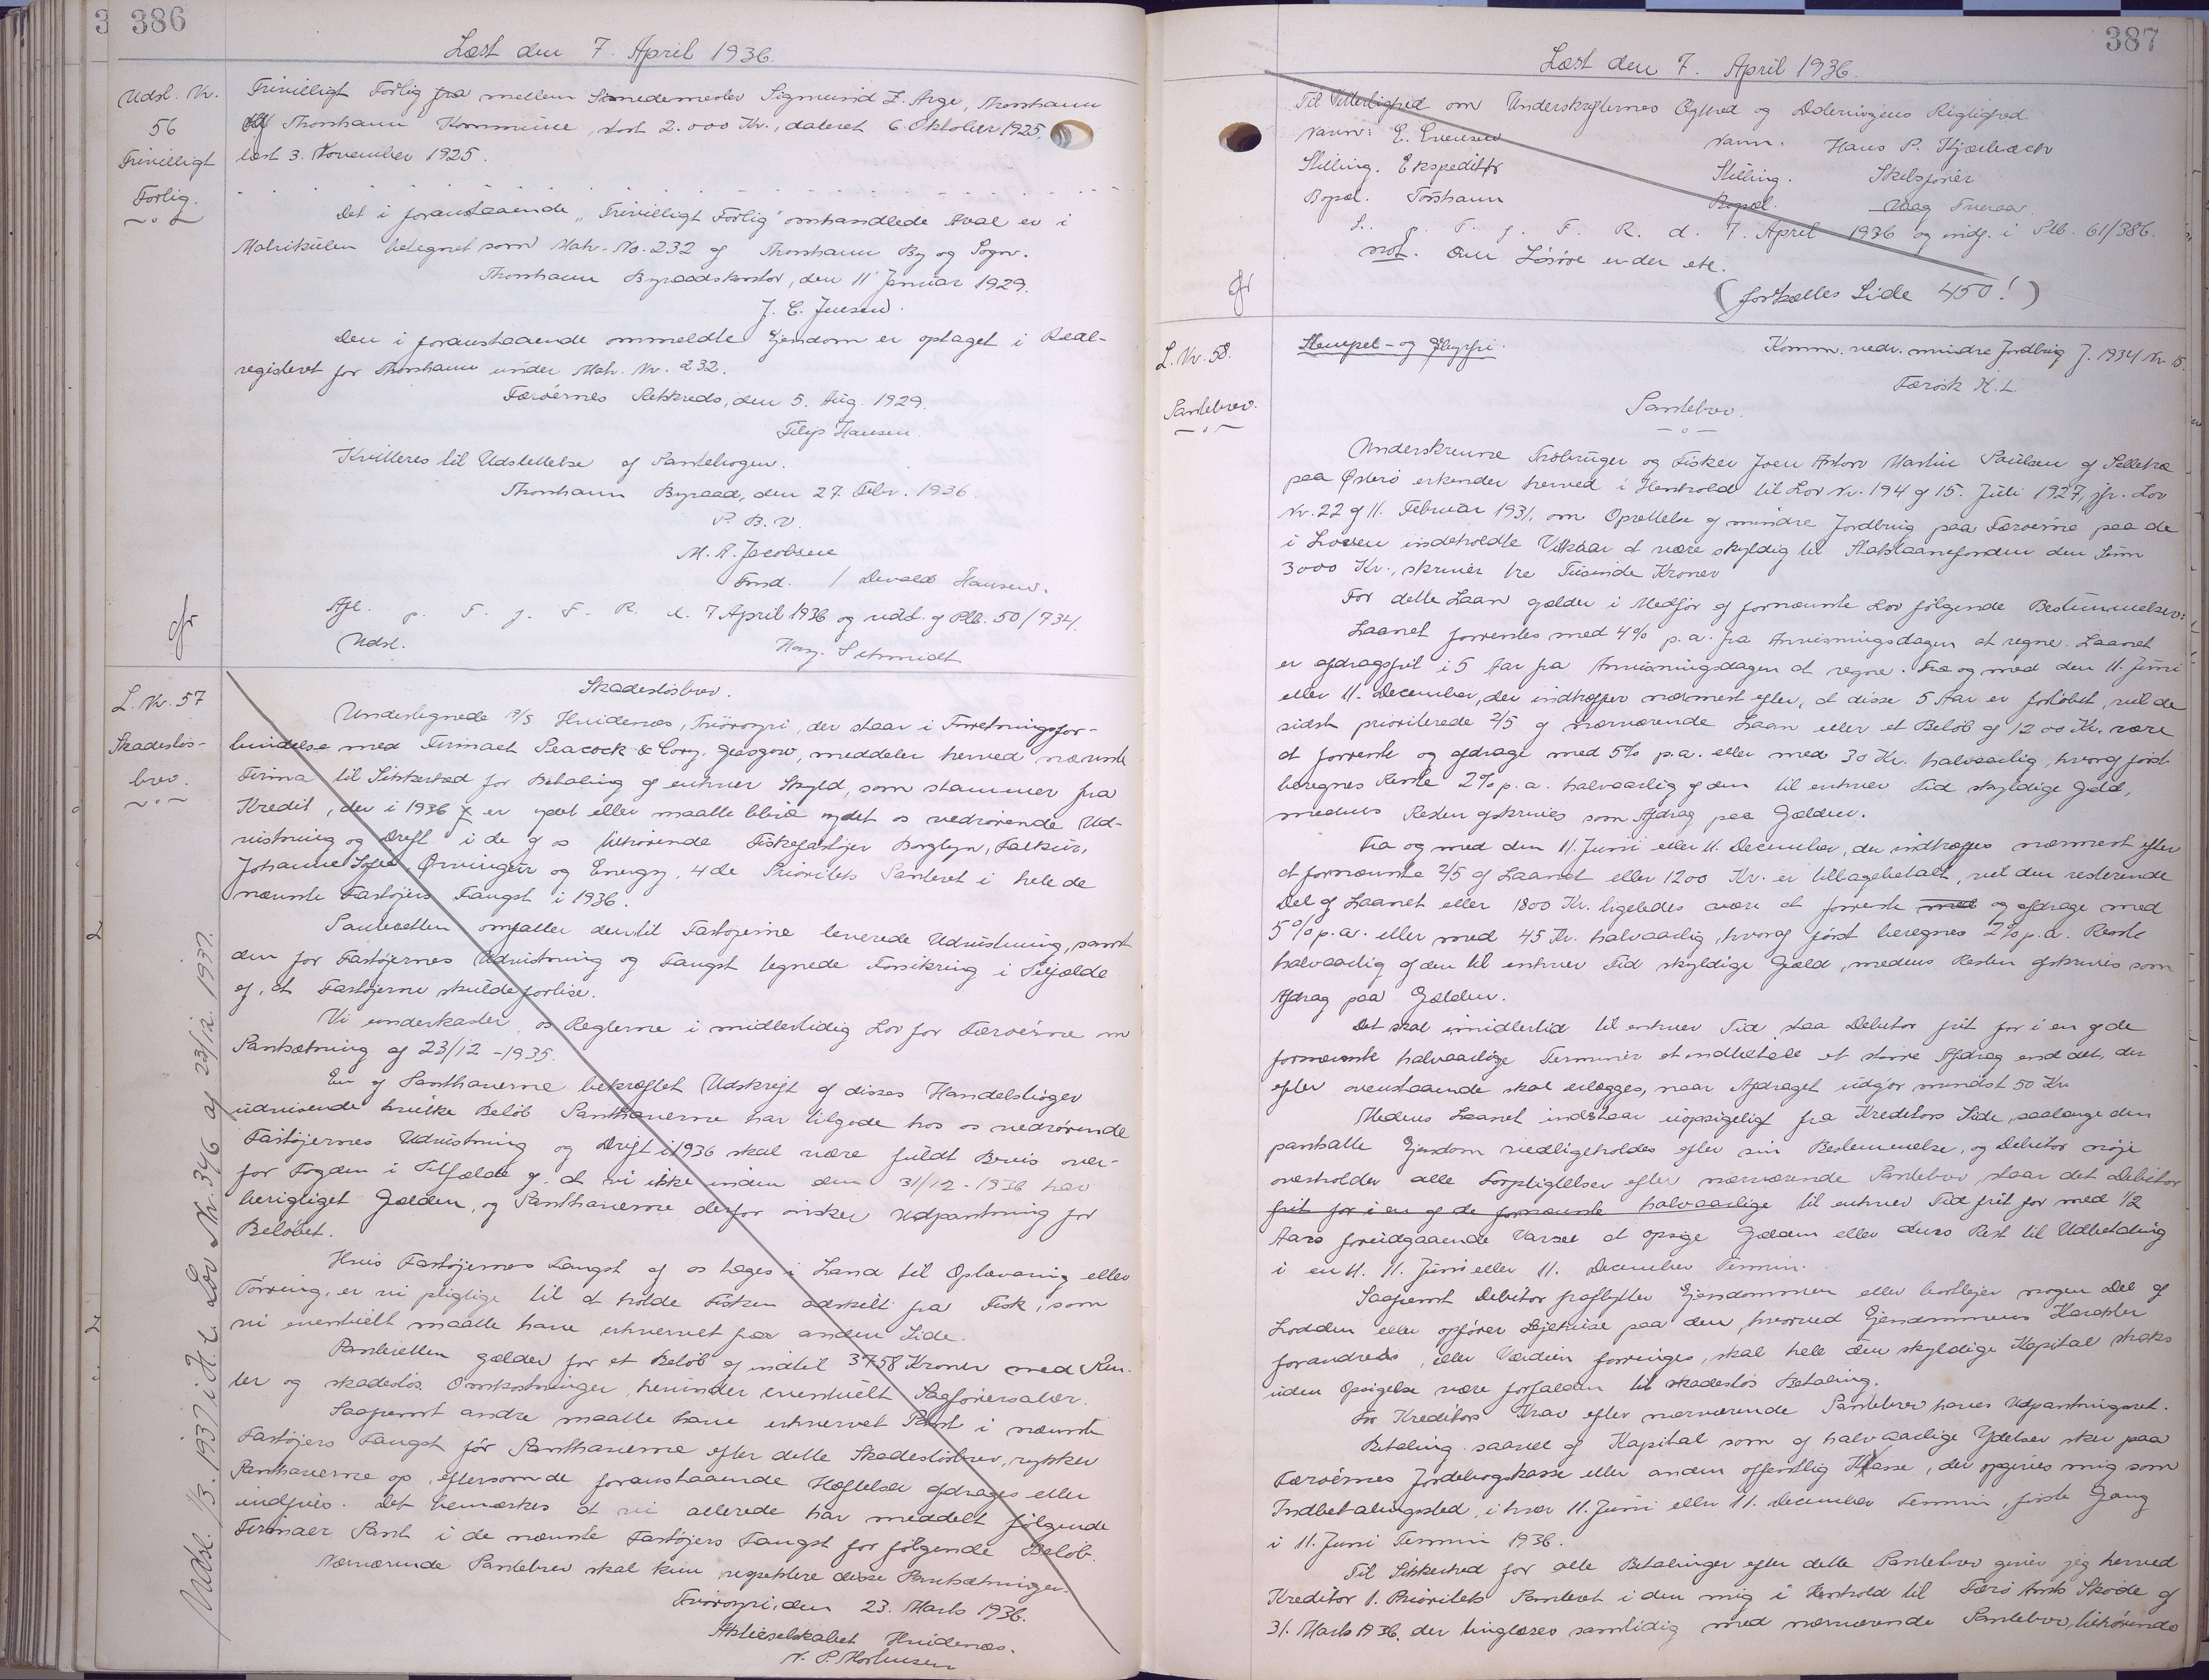 386
Læst den 7. April 1936.
Udsl. Nr.
56
Frivilligt
Forlig.
Frivilligt Forlig fra mellem Smedemester Sigmund Z. Arge, Thorshavn
og Thorshavn Kommune, stort 2.000 Kr., dateret 6. Oktober 1925,
læst 3. November 1925.
Det i foranstaaende "Frivilligt Forlig" omhandlede Areal er i
Matrikulen betegnet som Matr. No. 232 af Thorshavn By og Sogn.
Thorshavn Byraadskontor, den 11 Januar 1929.
J. C. Jensen.
Den i foranstaaende ommeldte Ejendom er optaget i Real-
registeret for Thorshavn under Matr. Nr. 232.
Færøernes Retskreds, den 5. Aug. 1929.
Filip Hansen
Kvitteres til Udslettelse af Pantebogen.
Thorshavn Byraad, den 27. Febr. 1936.
P. B. V.
M. A. Jacobsen
Fmd. / Devald Hansen.
Afl. p. T. f. F. R. d. 7 April 1936 og udsl. af Plb. 50/734.
Udsl. Harry Schmidt
L. Nr. 57
Skadesløs-
brev.
Skadesløsbrev.
Undertegnede A/S Hvidenæs, Tvöroyri, der staar i Forretningsfor-
bindelse med Firmaet Peacock & Cory, Glasgow, meddeler herved nævnte
Firma til Sikkerhed for Betaling af enhver Skyld, som stammer fra
Kredit, der i 1936 er ydet eller maatte blive ydet os vedrørende Ud-
rustning og Drift i de af os tilhørende Fiskefartøjer Borglyn, Falkur,
Johanne Sofie, Ørvingur og Energy, 4de Prioritets Panteret i hele de
nævnte Fartøjers Fangst i 1936.
Panteretten omfatter den til Fartøjerne leverede Udrustning, samt
den for Fartøjernes Udrustning og Fangst tegnede Forsikring i Tilfælde
af, at Fartøjerne skulde forlise.
Vi underkaster os Reglerne i midlertidig Lov for Færøerne om
Pantsætning af 23/12 - 1935.
En af Panthaverne bekræftet Udskrift af disses Handelsbøger
udvisende hvilke Beløb Panthaverne har tilgode hos os vedrørende
Fartøjernes Udrustning og Drift i 1936 skal være fuldt Bevis over-
for Fogden i Tilfælde af, at vi ikke inden den 31/12 - 1936 har
berigtiget Gælden, og Panthaverne derfor ønsker Udpantning for
Beløbet.
Hvis Fartøjernes Fangst af os tages i Land til Oplagring eller
Tørring, er vi pligtige til at holde Fisken adskilt fra Fisk, som
vi eventuelt maatte have erhvervet fra anden Side.
Panteretten gælder for et Beløb af indtil 3758 Kroner med Ren-
ter og skadesløs Omkostninger, herunder eventuelt Sagførersalær.
Saafremt andre maatte have erhvervet Pant i nævnte
Fartøjers Fangst før Panthaverne efter dette Skadesløsbrev, rykker
Panthaverne op, eftersom de foranstaaende Hæftelser afdrages eller
indfries. Det bemærkes at vi allerede har meddelt følgende
Firmaer Pant i de nævnte Fartøjers Fangst for følgende Beløb.
Nærværende Pantebrev skal kun respektere disse Pantsætninger.
Tvøroyri, den 23. Marts 1936.
Aktieselskabet Hvidenæs.
N. P. Mortensen
Udsl. 1/3. 1937 i H. t. Lov Nr. 346 af 23/12. 1937.
387
Læst den 7. April 1936.
Til Vitterlighed om Underskrifternes Ægthed og Dateringens Rigtighed.
Navn: E. Evensen Navn. Hans P. Kjærbæch
Stilling. Ekspeditør Stilling. Skibsfører
Bopæl. Tórshavn Bopæl. Vaag Trueraa.
L. p. T. f. F. R. d. 7. April 1936 og indf. i Plb. 61/386.
not. Om Løsøre ender etc.
(fortsættes Side 450!)
L. Nr. 58.
Pantebrev.
Stempel- og Gebyrfri. Komm. vedr. mindre Jordbrug J. 1934 Nr. 15.
Færøsk H. L.
Pantebrev.
Underskrevne Træbruger og Fisker Joen Anton Martin Poulsen af Selletræ
paa Østerø erkender herved i Henhold til Lov Nr. 194 af 15. Juli 1927, jfr. Lov
Nr. 22 af 11. Februar 1931, om Oprettelse af mindre Jordbrug paa Færøerne paa de
i Loven indeholdte Vilkaar at være skyldig til Statslaanefonden den Sum
3000 Kr., skriver tre Tusinde Kroner
For dette Laan gælder i Medfør af fornævnte Lov følgende Bestemmelser:
Laanet forrentes med 4% p.a. fra Anvisningsdagen at regne. Laanet
er afdragsfrit i 5 Aar fra Anvisningsdagen at regne. Fra og med den 11. Juni
eller 11. December, der indtræffer nærmest efter, at disse 5 Aar er forløbet, vil de
sidst prioriterede 2/5 af nærværende Laan eller et Beløb af 1200 Kr. være
at forrente og afdrage med 5% p.a. eller med 30 Kr. halvaarlig, hvoraf først
beregnes Rente 2% p.a. halvaarlig af den til enhver Tid skyldige Gæld,
medens Resten afskrives som Afdrag paa Gælden.
Fra og med den 11. Juni eller 11. December, der indtræffer nærmest efter
at fornævnte 2/5 af Laanet eller 1200 Kr. er tilbagebetalt, vil den resterende
Del af Laanet eller 1800 Kr. ligeledes være at forrente med og afdrage med
5% p.a. eller med 45 Kr. halvaarlig, hvoraf først beregnes 2% p.a. Rente
halvaarlig af den til enhver Tid skyldige Gæld, medens Resten afskrives som
Afdrag paa Gælden.
Det skal imidlertid til enhver Tid staa Debitor frit for i en af de
fornævnte halvaarlige Terminer at indbetale et større Afdrag end det, der
efter ovenstaaende skal erlægges, naar Afdraget udgør mindst 50 Kr
Medens Laanet indstaar uopsigeligt fra Kreditors Side, saalænge den
pantsatte Ejendom vedligeholdes efter sin Bestemmelse, og Debitor nøje
overholder alle Forpligtelser efter nærværende Pantebrev, staar det Debitor
frit for i en af de fornævnte halvaarlige til enhver Tid frit for med 1/2
Aars forudgaaende Varsel at opsige Gælden eller dens Rest til Udbetaling
i en 11. 11. Juni eller 11. December Termin.
Saafremt Debitor fraflytter Ejendommen eller bortlejer nogen Del af
Lodden eller opfører Lejehuse paa den, hvorved Ejendommens Karakter
forandreds, eller Værdien forringes, skal hele den skyldige Kapital straks
uden Opsigelse være forfalden til skadesløs Betaling.
For Kreditors Krav efter nærværende Pantebrev haves Udpantningsret.
Betaling saavel af Kapital som af halvaarlige Ydelser sker paa
Færøernes Jordebogskasse eller anden offentlig Kasse, der opgives mig som
Indbetalingssted, i hver 11. Juni eller 11. December Termin, første Gang
i 11. Juni Termin 1936.
Til Sikkerhed for alle Betalinger efter dette Pantebrev giver jeg herved
Kreditor 1. Prioritets Panteret i den mig i Henhold til Færø Amts Skøde af
31. Marts 1936, der tinglæses samtidig med nærværende Pantebrev, tilhørende